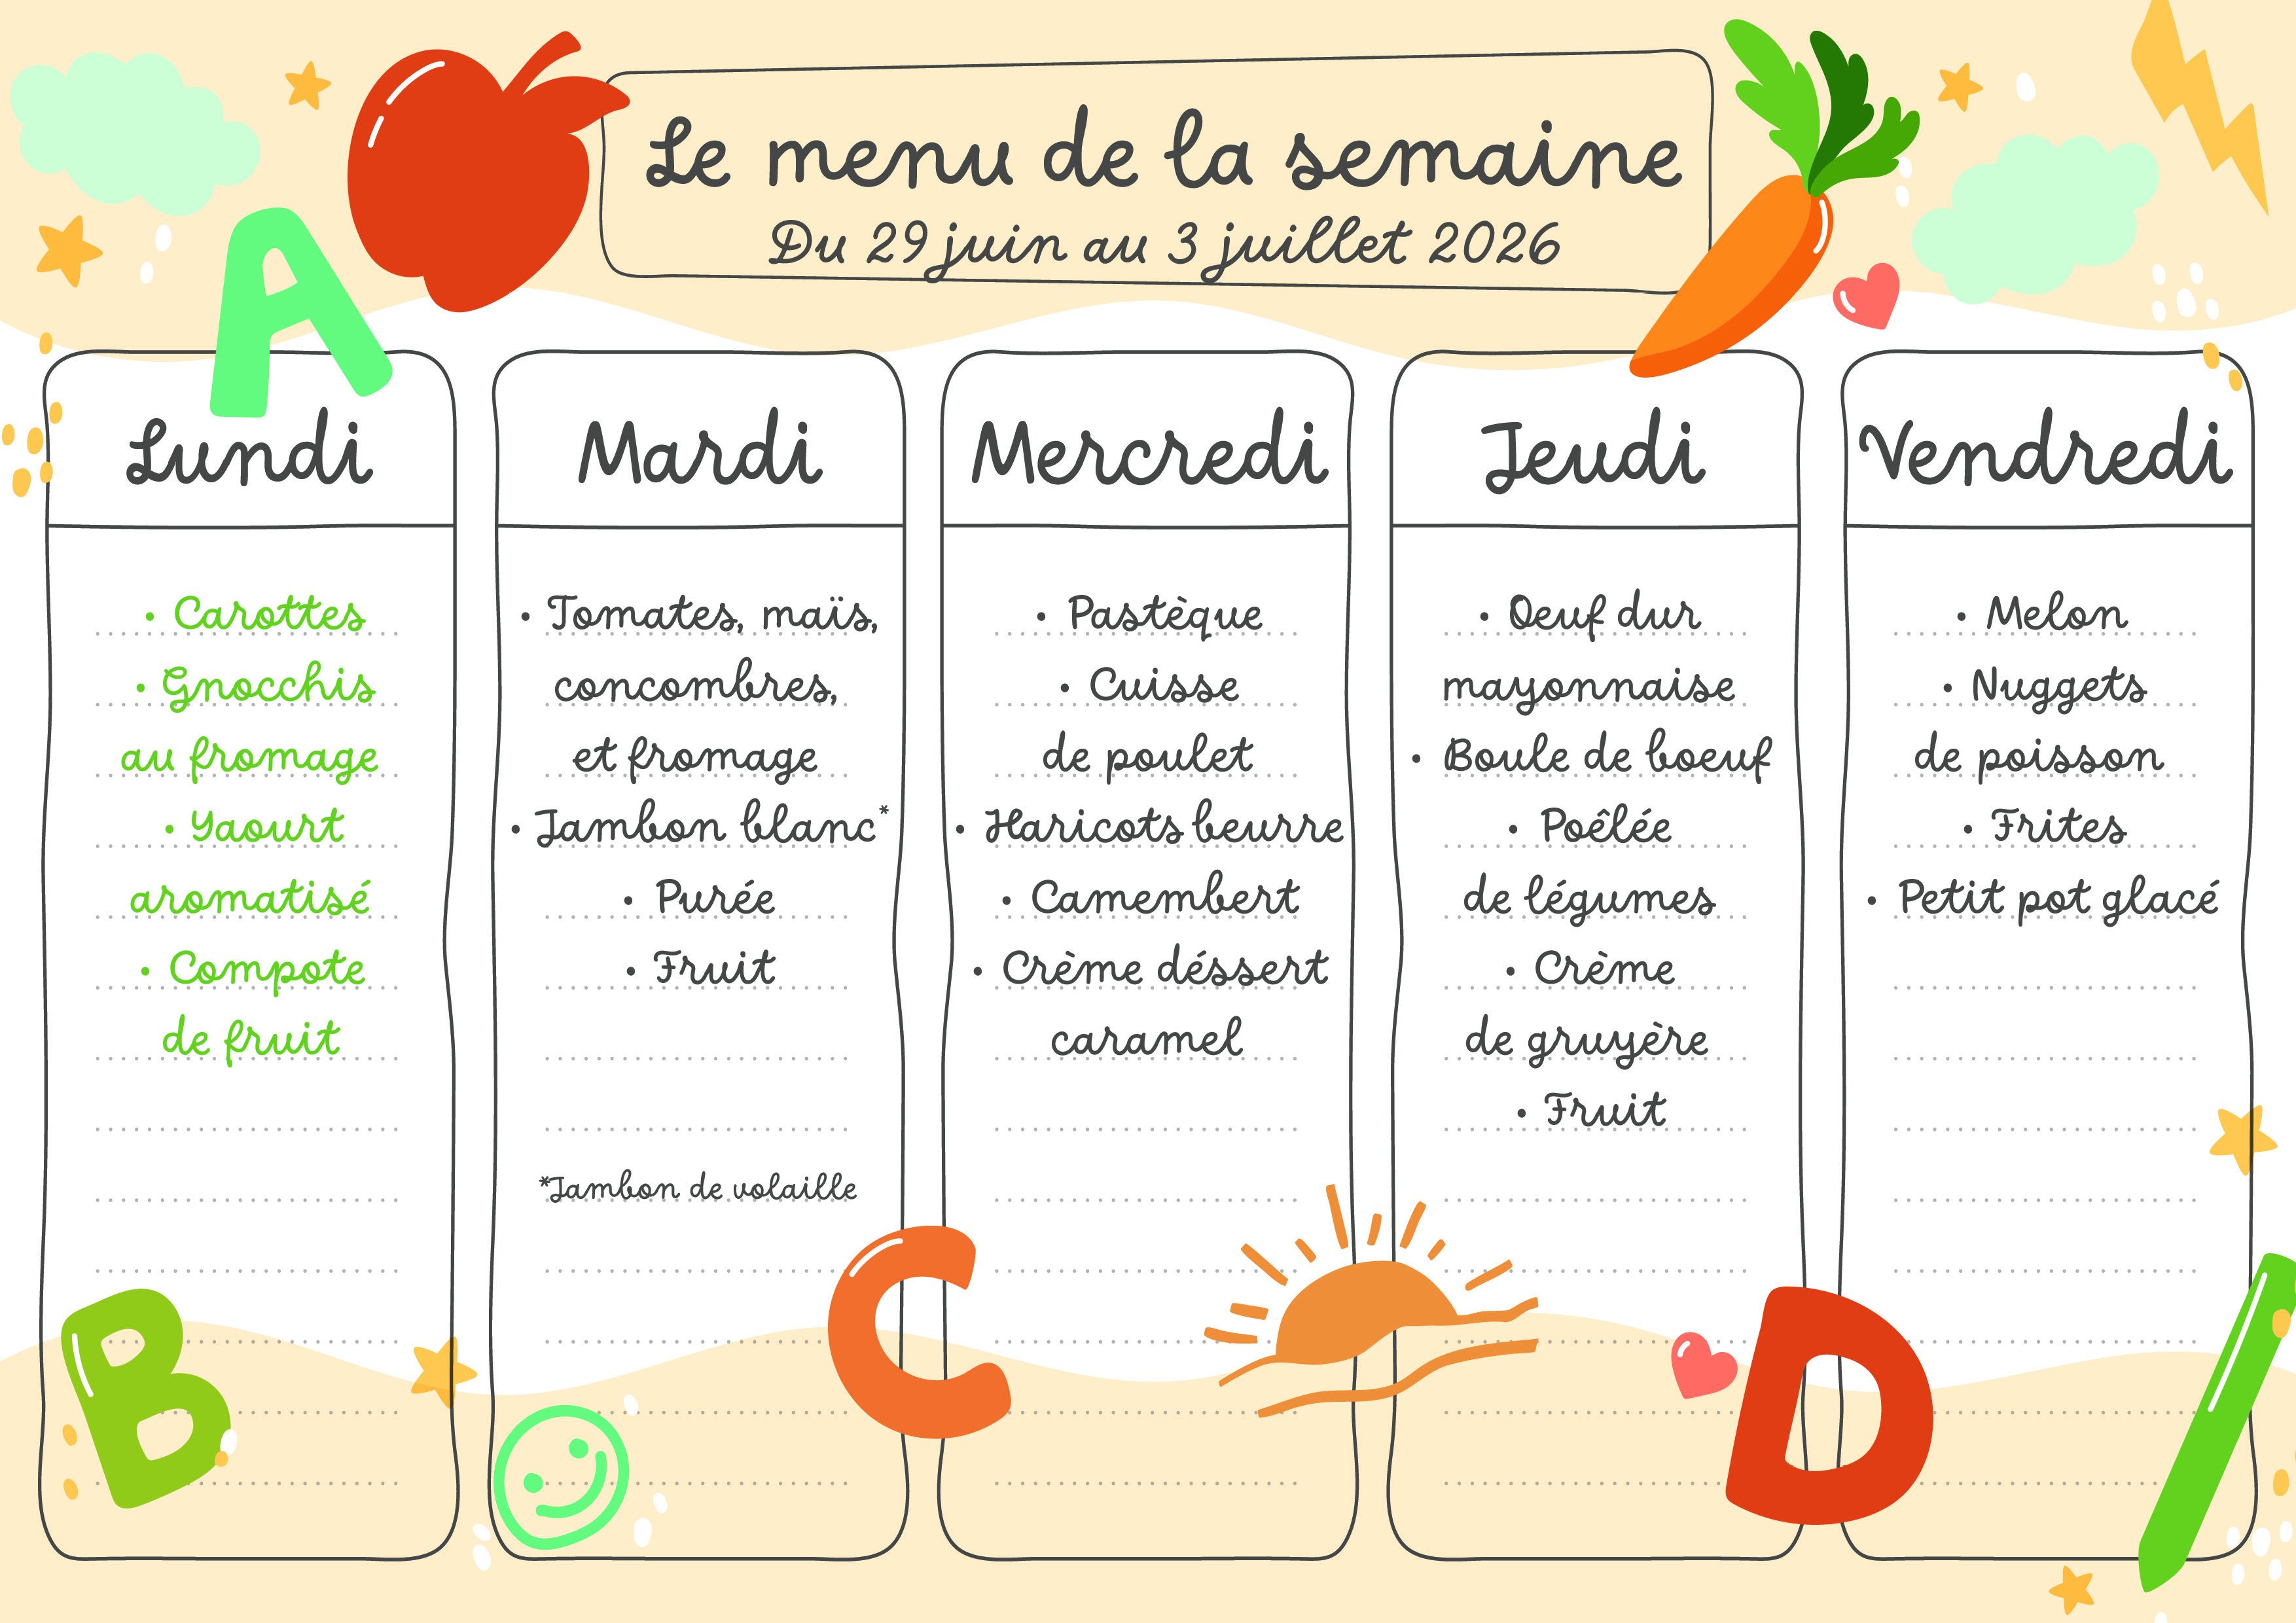 A
Le menu de la semaine
Du 29 juin au 3 juillet 2026
Lundi
• Carottes
• Gnocchis
au fromage
• Yaourt
aromatisé
• Compote
de fruit
Mardi
• Tomates, maïs,
concombres,
et fromage
• Jambon blanc*
• Purée
• Fruit
*Jambon de volaille
Mercredi
• Pastèque
• Cuisse
de poulet
• Haricots beurre
• Camembert
• Crème déssert
caramel
Jeudi
• Oeuf dur
mayonnaise
• Boule de boeuf
• Poêlée
de légumes
• Crème
de gruyère
• Fruit
Vendredi
• Melon
• Nuggets
de poisson
• Frites
• Petit pot glacé
B
C
D